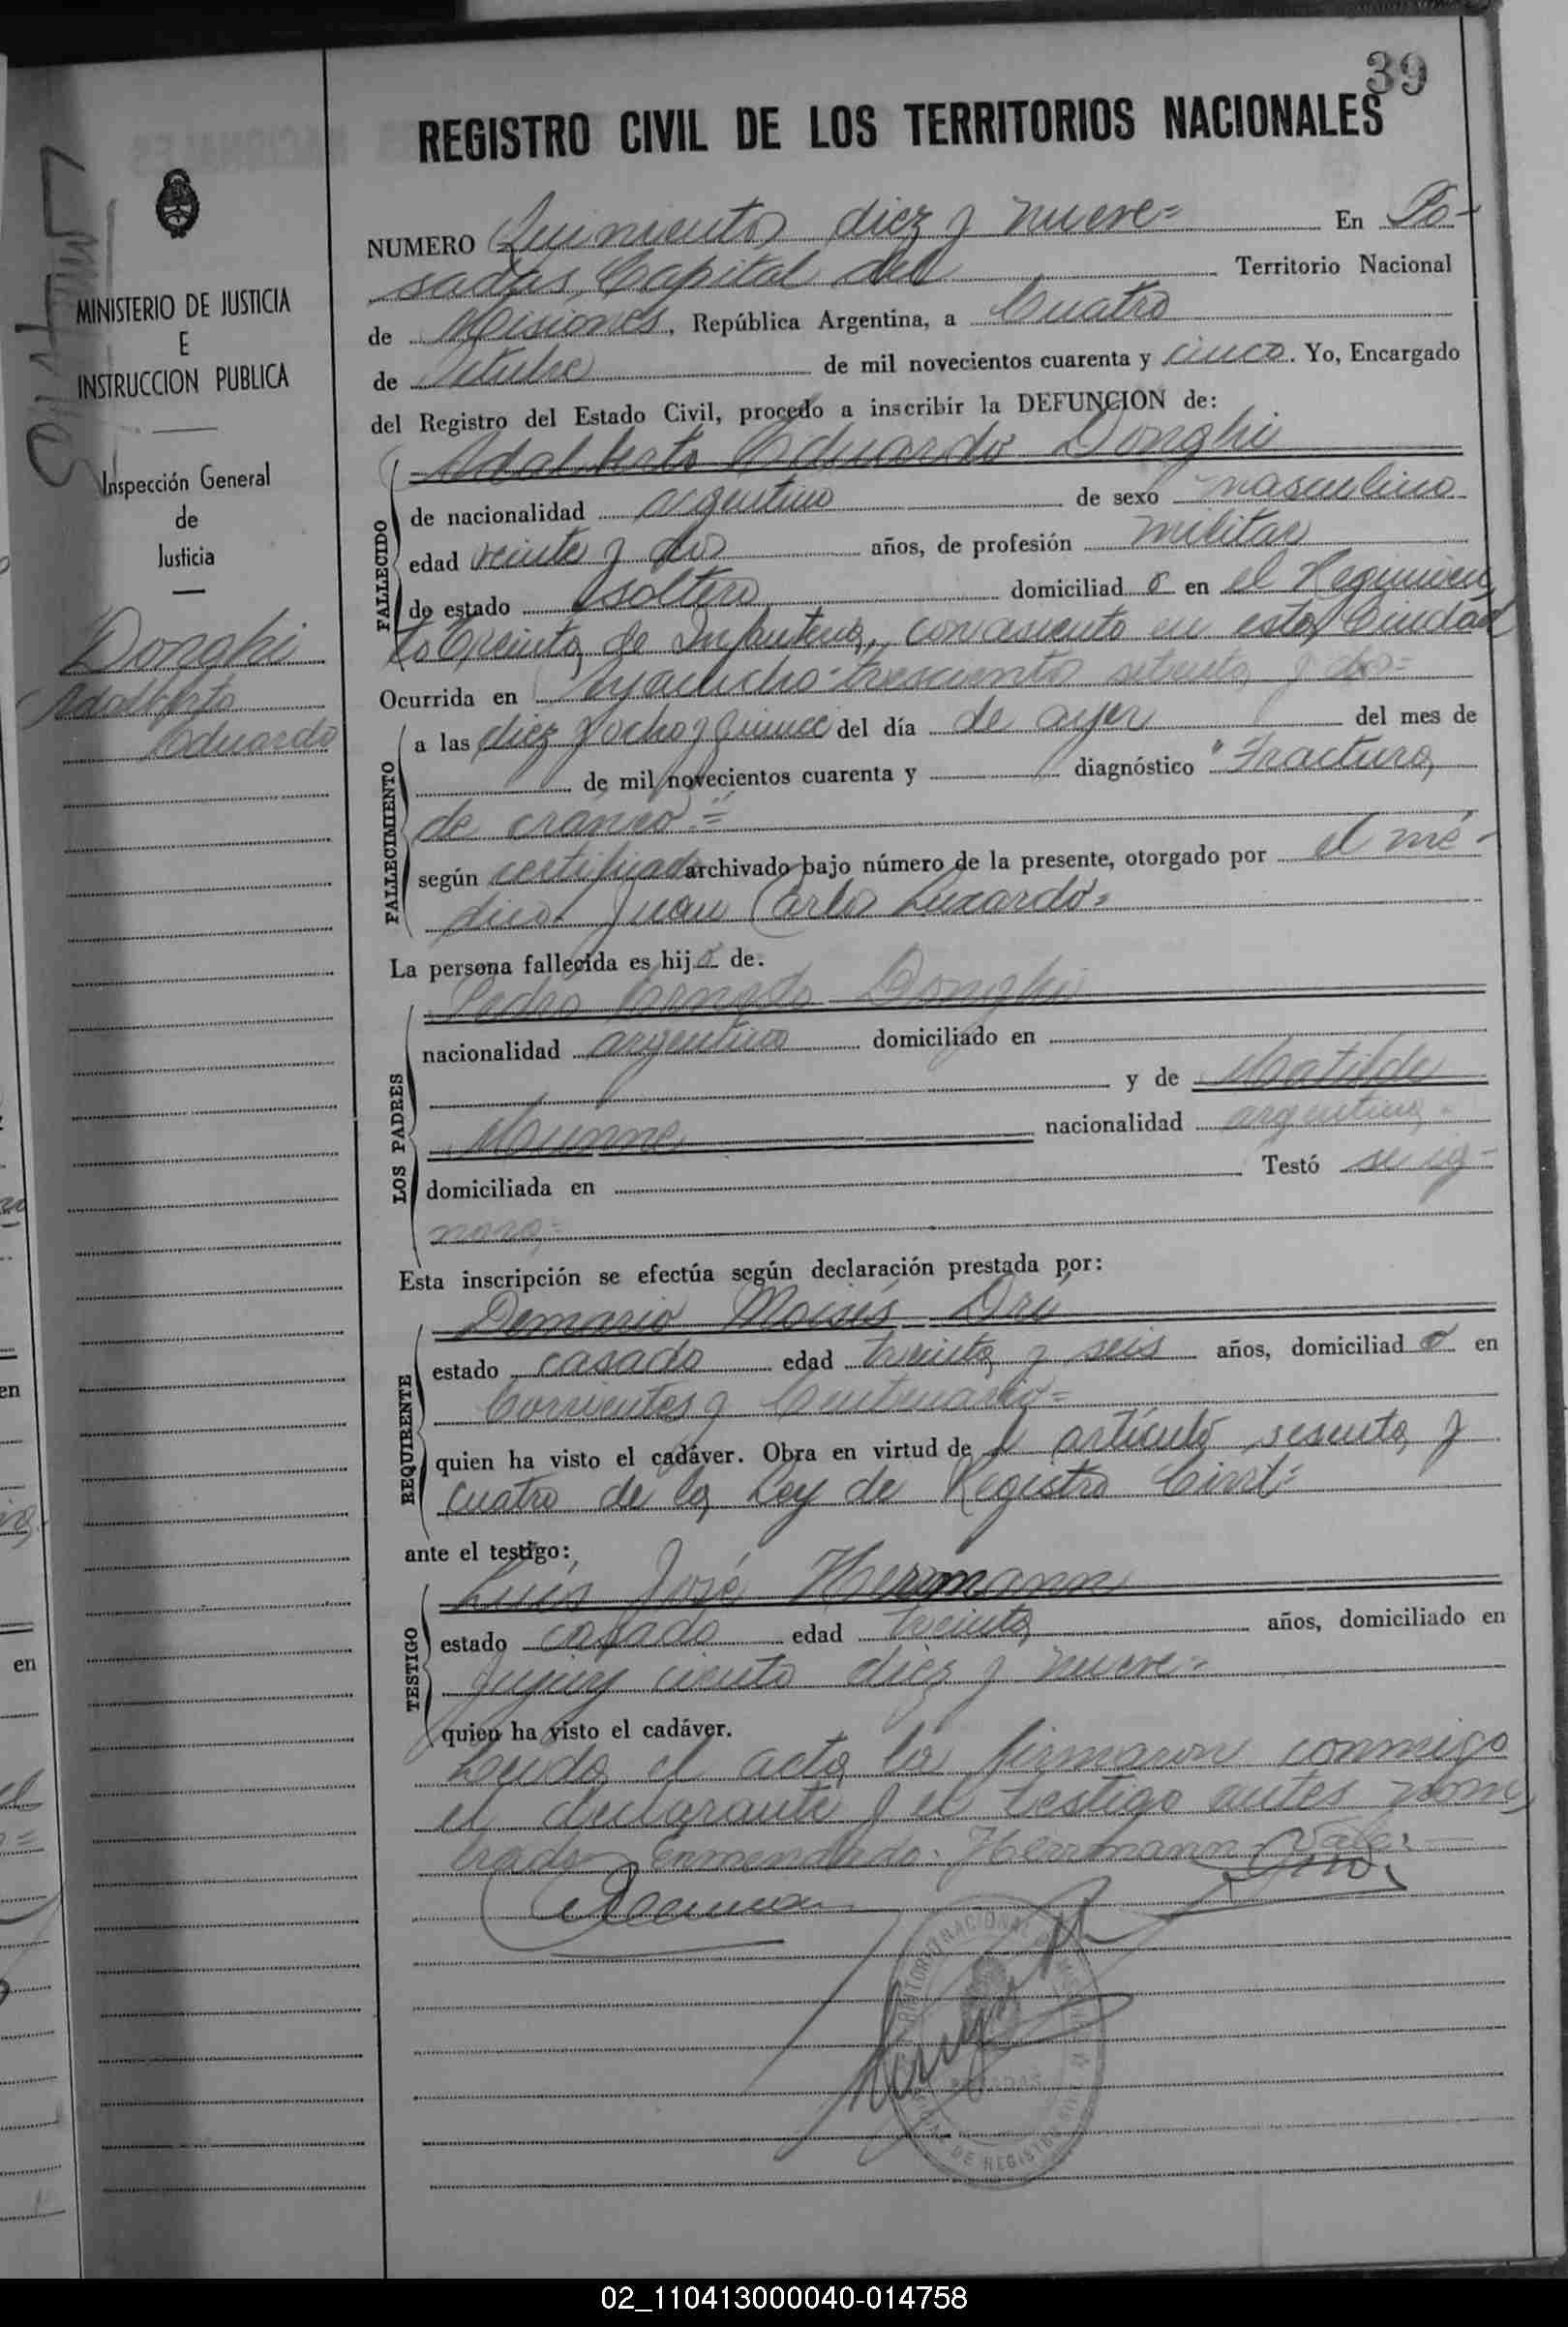 39
REGISTRO CIVIL DE LOS TERRITORIOS NACIONALES
MINISTERIO DE JUSTICIA
E
INSTRUCCION PUBLICA
Inspección General
de
Justicia
Donghi
Adalberto
Eduardo
NUMERO Quinientos diez y nueve= En Po-
sadas, Capital del Territorio Nacional
de Misiones, República Argentina, a Cuatro
de Octubre de mil novecientos cuarenta y cinco. Yo, Encargado
del Registro del Estado Civil, procedo a inscribir la DEFUNCION de:
Adalberto Eduardo Donghi
FALLECIDO
de nacionalidad argentino de sexo masculino
edad veinte y dos años, de profesión militar
de estado soltero domiciliad o en el Regimien
to Treinta de Infanteria, con asiento en esta Ciudad
Ocurrida en Ayacucho trescientos setenta y dos=
FALLECIMIENTO
a las diez y ocho y quince del día de ayer del mes de
de mil novecientos cuarenta y diagnóstico "Fractura
de cráneo"=
según certificado archivado bajo número de la presente, otorgado por el mé-
dico Juan Carlos Luxardo=
La persona fallecida es hijo de:
LOS PADRES
Pedro Ernesto Donghi
nacionalidad argentino domiciliado en
y de Matilde
Munne nacionalidad argentina.
domiciliada en Testó se ig-
nora=
Esta inscripción se efectúa según declaración prestada por:
REQUIRENTE
Demario Moisés Drí
estado casado edad treinta y seis años, domiciliad o en
Corrientes y Centenario=
quien ha visto el cadáver. Obra en virtud de l artículo sesenta y
cuatro de la Ley de Registro Civil=
ante el testigo:
TESTIGO
Luis José Herrmann
estado casado edad treinta años, domiciliado en
Jujuy ciento diez y nueve=
quien ha visto el cadáver.
Leida el acta la firmaron conmigo
el declarante y el testigo antes nom
brado. Enmendado: Herrmann. Vale:
02_110413000040-014758